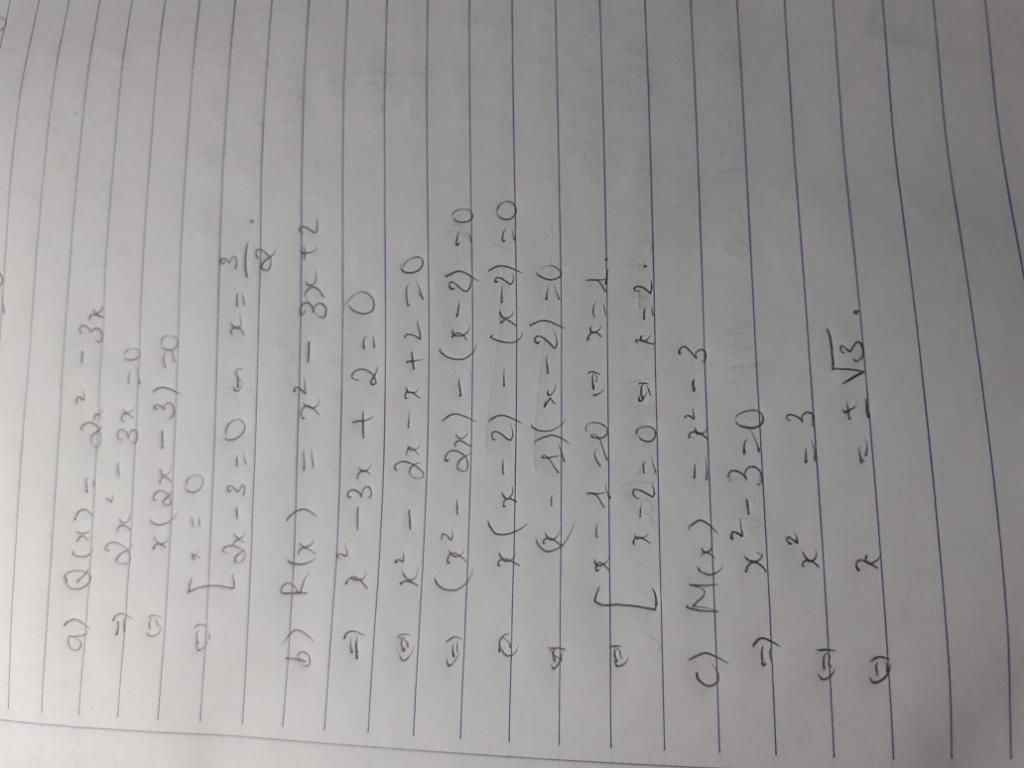 a) Q(x) = 2x² - 3x
=> 2x² - 3x = 0
<=> x(2x - 3) = 0
<=> [ x = 0
2x - 3 = 0 <=> x = 3/2.
b) R(x) = x² - 3x + 2
=> x² - 3x + 2 = 0
<=> x² - 2x - x + 2 = 0
<=> (x² - 2x) - (x - 2) = 0
<=> x(x - 2) - (x - 2) = 0
<=> (x - 1)(x - 2) = 0
<=> [ x - 1 = 0 <=> x = 1.
x - 2 = 0 <=> x = 2.
c) M(x) = x² - 3
=> x² - 3 = 0
<=> x² = 3
<=> x = ±√3.